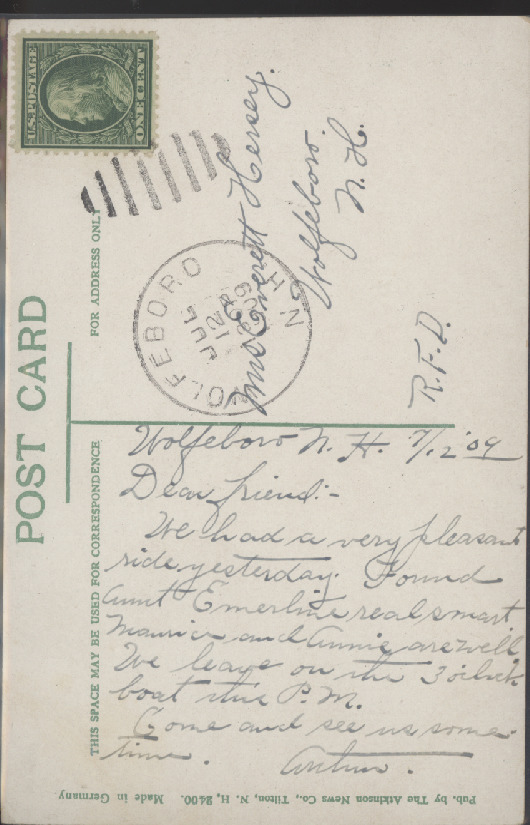 POST CARD
FOR ADDRESS ONLY
THIS SPACE MAY BE USED FOR CORRESPONDENCE
U.S. POSTAGE
ONE CENT
WOLFEBORO N.H.
JUL
12
1909
Mrs Everett Hersey.
Wolfeboro.
N. H.
R. F. D.
Wolfeboro N. H. 7/12 '09
Dear friend:-
We had a very pleasant
ride yesterday. Found
Aunt Emerline real smart
Maurice and Annie are well
We leave on the 3 o'clock
boat this P.M.
Come and see us some
time.
Pub. by The Atkinson News Co., Tilton, N. H. 2400. Made in Germany